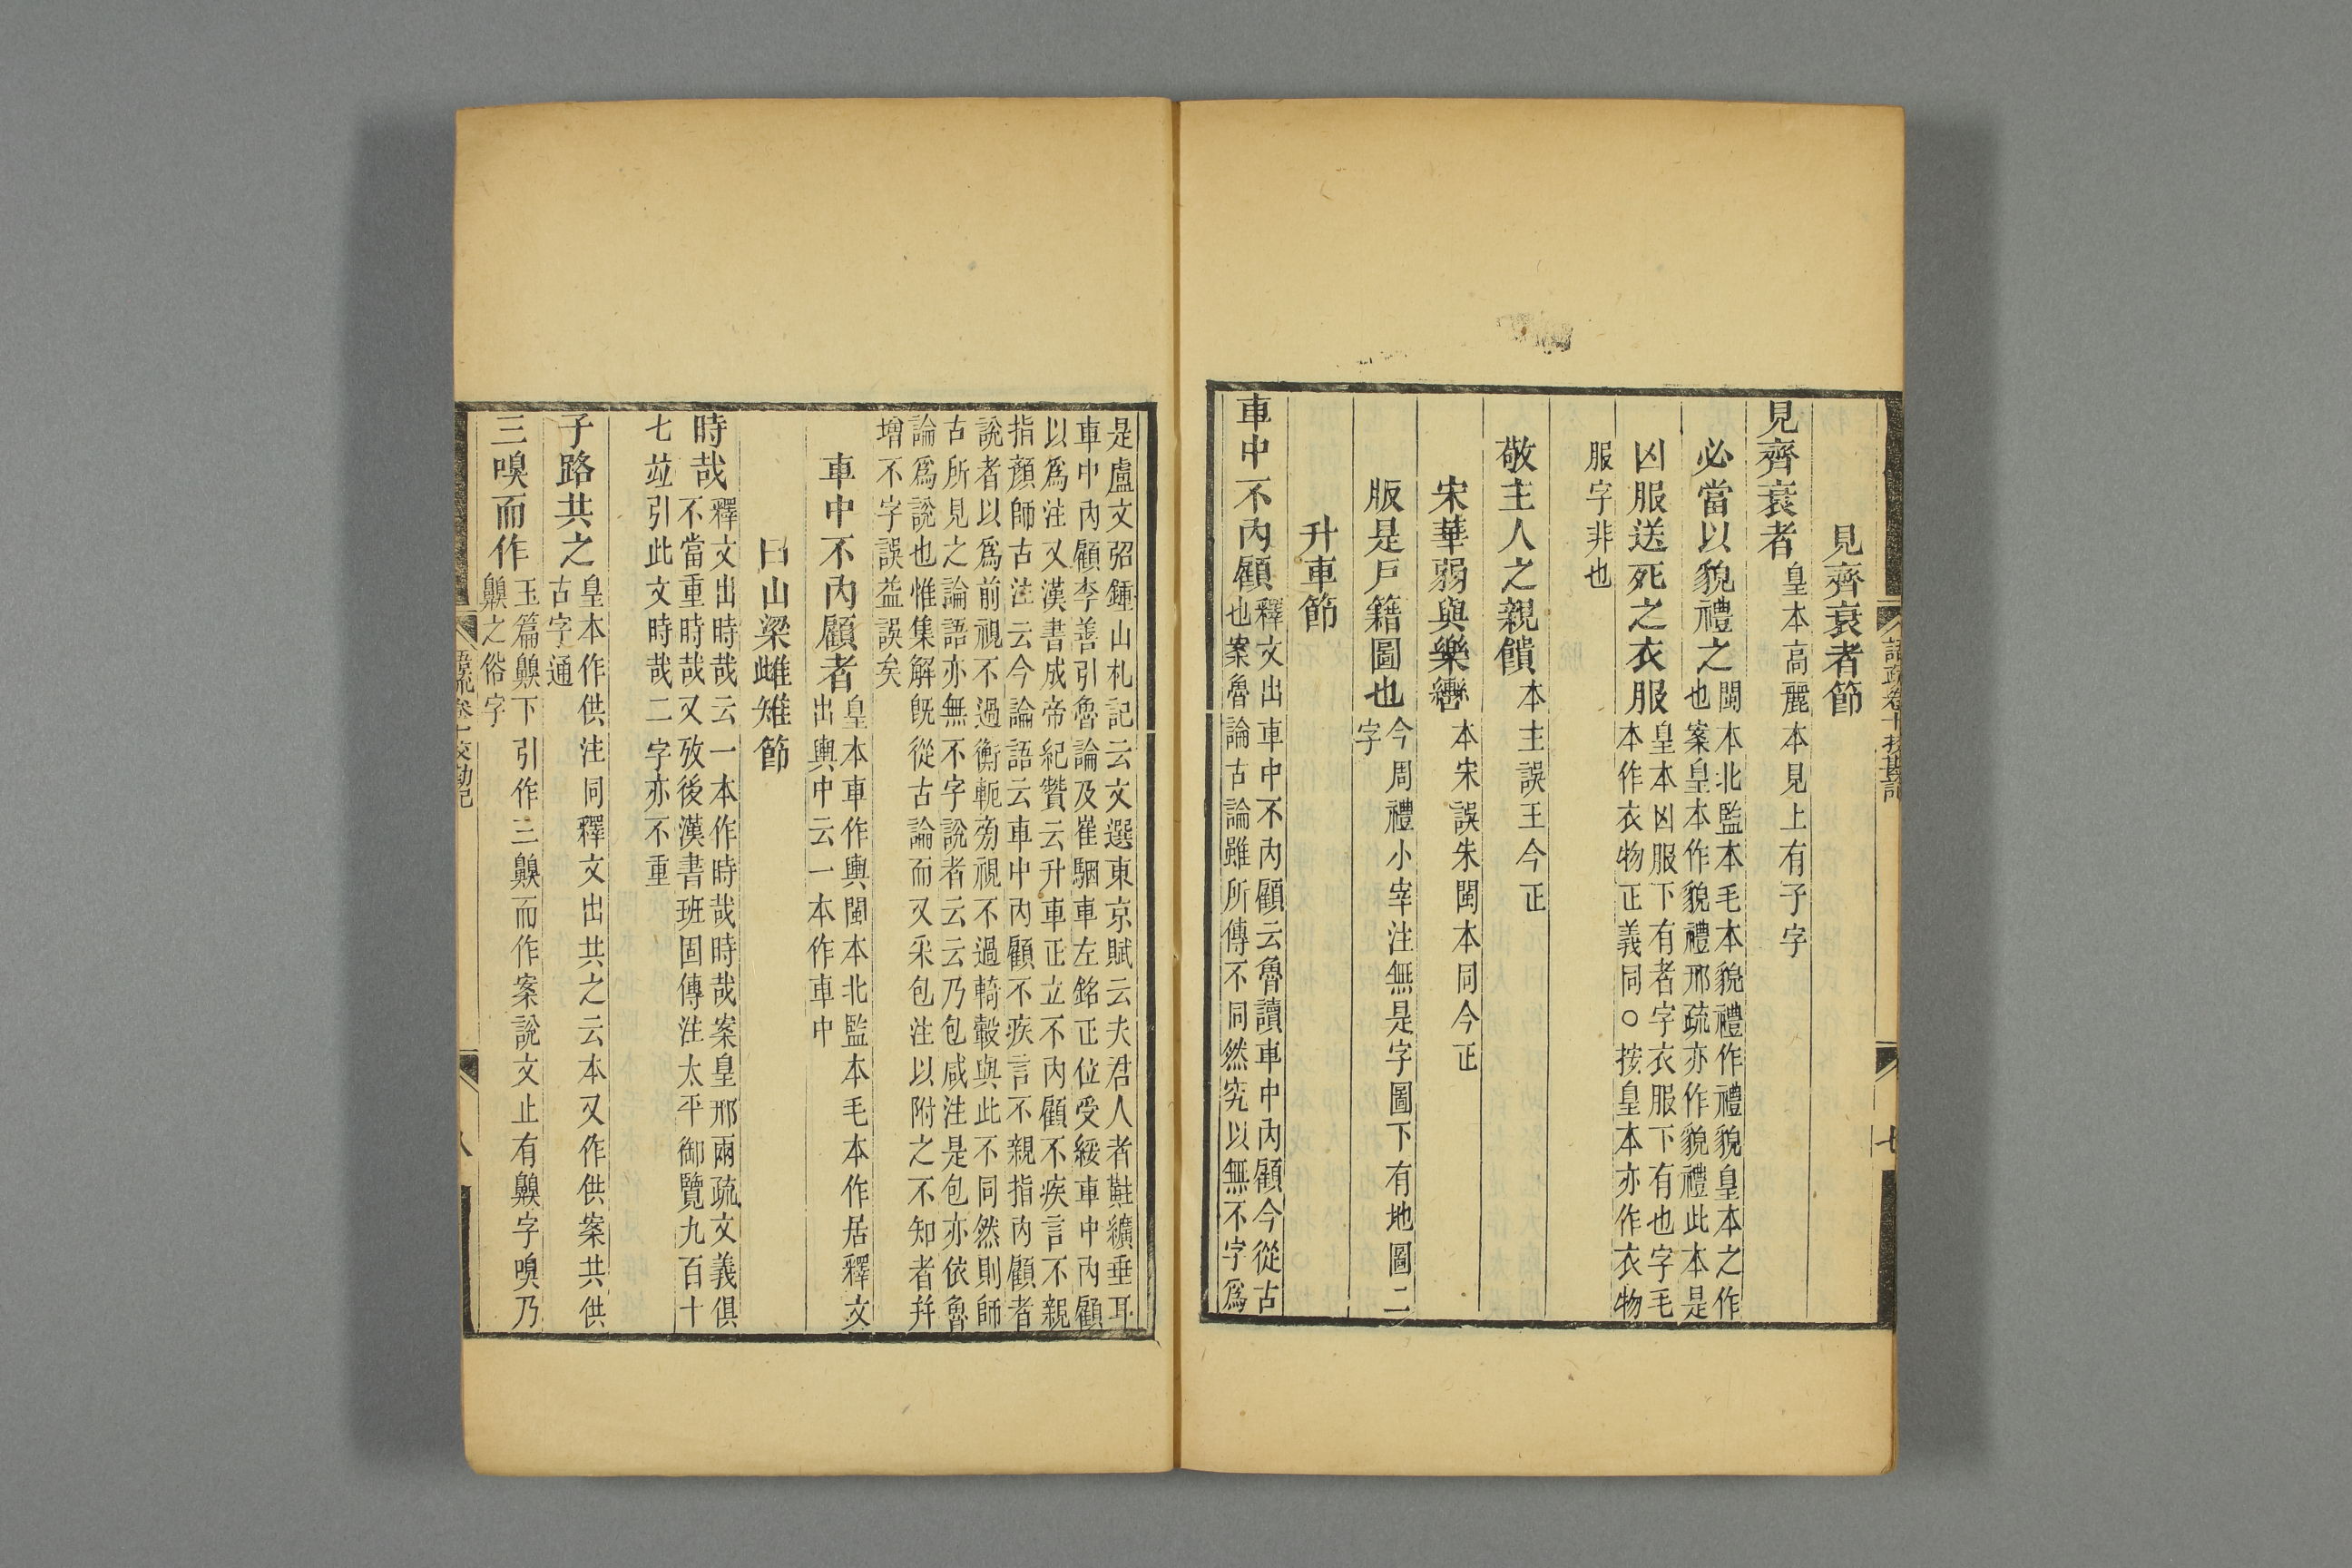 見齊衰者節
見齊衰者皇本高麗本見上有子字
必當以貌禮之閩本北監本毛本貌禮作禮貌皇本之作
也案皇本作貌禮邢疏亦作貌禮此本是
凶服送死之衣服皇本凶服下有者字衣服下有也字毛
本作衣物正義同○按皇本亦作衣物
服字非也
敬主人之親饋本主誤王今正
宋華弱與樂轡本宋誤朱閩本同今正
版是戶籍圖也今周禮小宰注無是字圖下有地圖二
字
升車節
車中不內顧釋文出車中不內顧云魯讀車中內顧今從古
也案魯論古論雖所傳不同然究以無不字爲
語疏卷十挍勘記
七
是盧文弨鍾山札記云文選東京賦云夫君人者黈纊垂耳
車中內顧李善引魯論及崔駰車左銘正位受綏車中內顧
以爲注又漢書成帝紀贊云升車正立不內顧不疾言不親
指顏師古注云今論語云車中內顧不疾言不親指內顧者
說者以爲前視不過衡軛旁視不過輢轂與此不同然則師
古所見之論語亦無不字說者云云乃包咸注是包亦依魯
論爲說也惟集解既從古論而又采包注以附之不知者幷
增不字誤益誤矣
車中不內顧者皇本車作輿閩本北監本毛本作居釋文
出輿中云一本作車中
曰山梁雌雉節
時哉釋文出時哉云一本作時哉時哉案皇邢兩疏文義俱
不當重時哉又攷後漢書班固傳注太平御覽九百十
七竝引此文時哉二字亦不重
子路共之皇本作供注同釋文出共之云本又作供案共供
古字通
三嗅而作玉篇齅下引作三齅而作案說文止有齅字嗅乃
齅之俗字
語疏卷十挍勘記
八